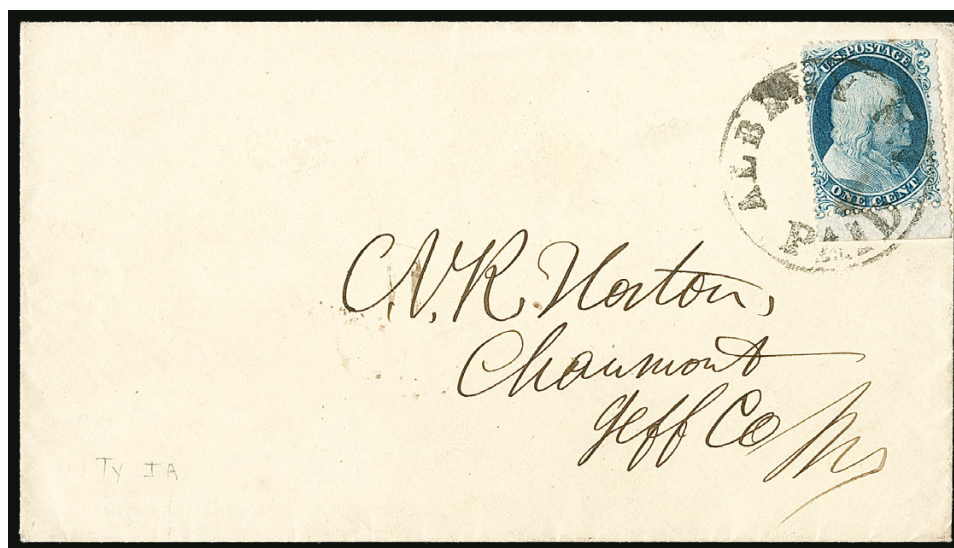 U.S. POSTAGE
ONE CENT
ALBANY
PAID
C.V.R. Horton,
Chaumont
Jeff Co
Ty IA